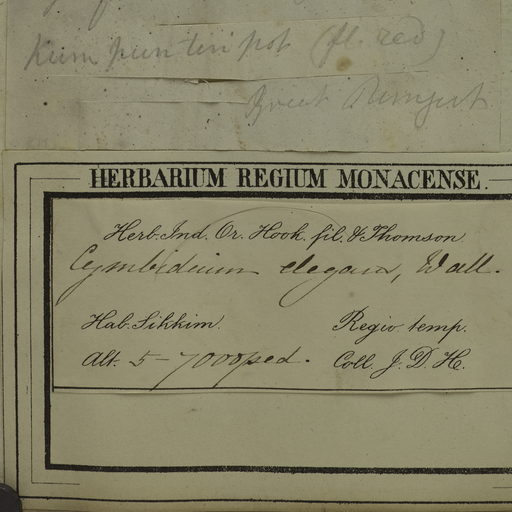 (fl. red)
HERBARIUM REGIUM MONACENSE.
Herb. Ind. Or. Hook. fil. & Thomson
Cymbidium elegans, Wall.
Hab. Sikkim. Regio temp.
Alt. 5-7000 ped. Coll. J. D. H.